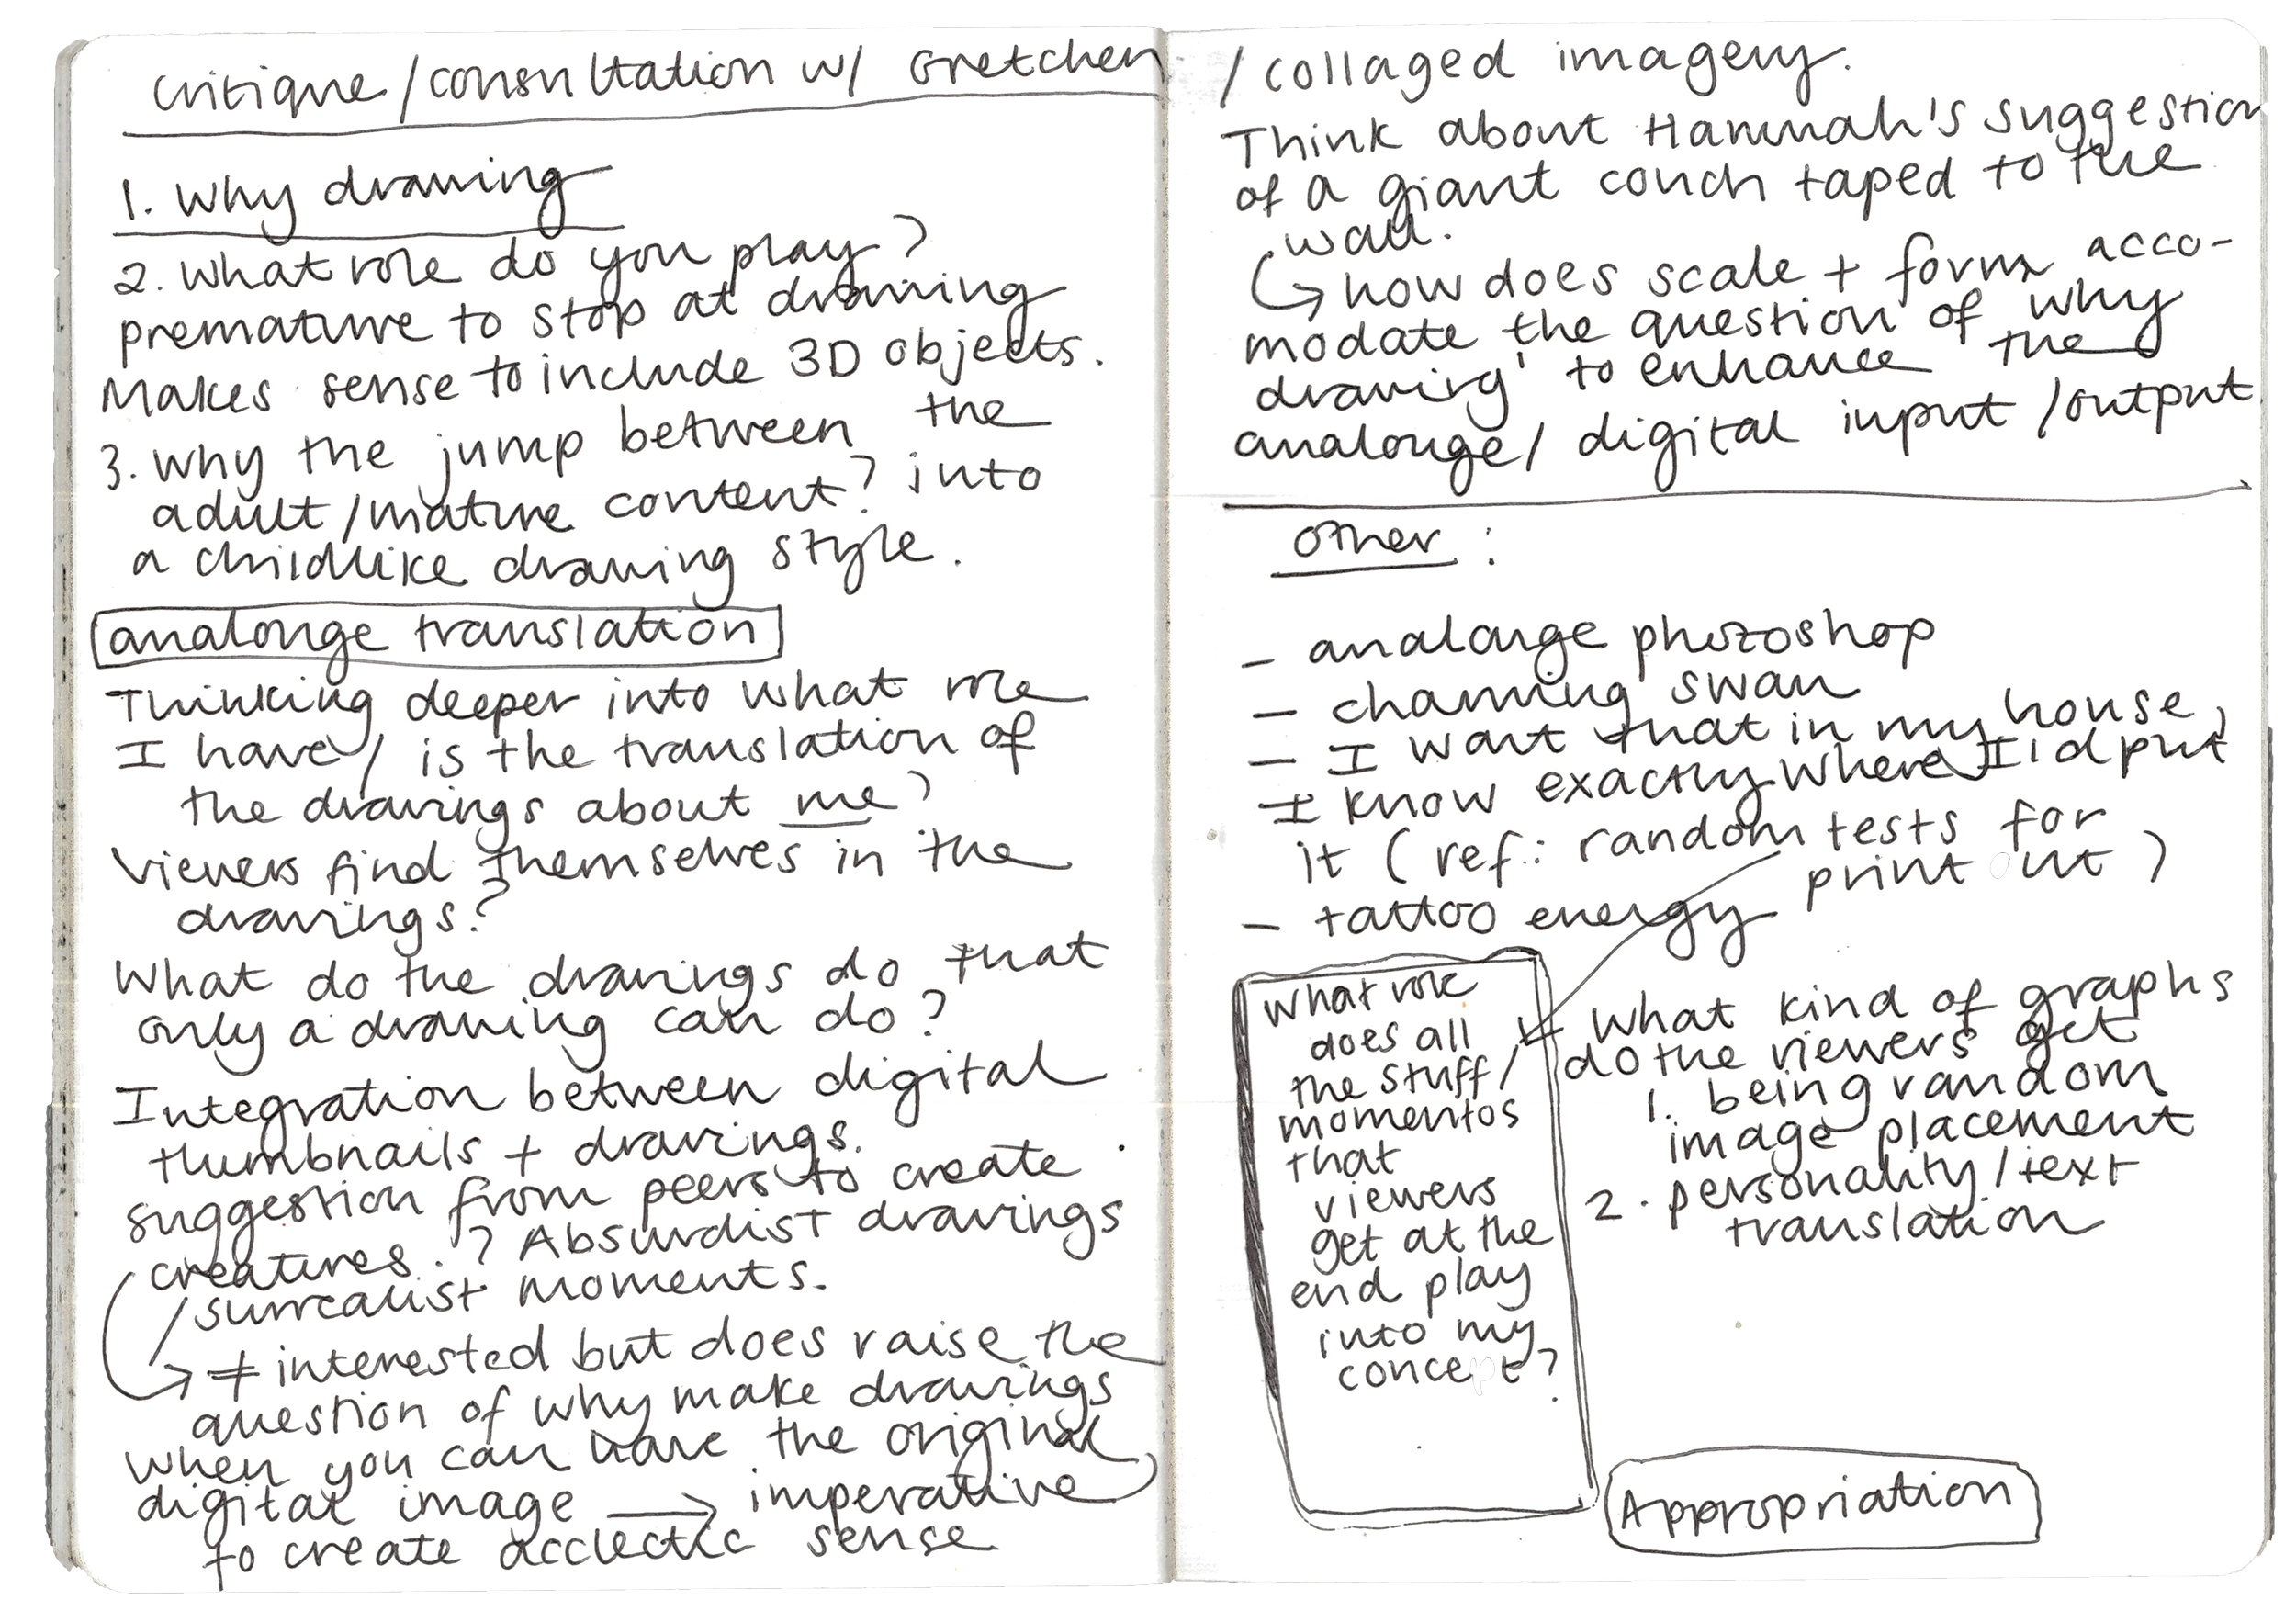 critique/consultation w/ Gretchen
1. Why drawing
2. What role do you play?
premature to stop at drawing
Makes sense to include 3D objects.
3. Why the jump between the
adult/mature content? into
a childlike drawing style.
analouge translation
Thinking deeper into what role
I have / is the translation of
the drawings about me?
Viewers find themselves in the
drawings?
What do the drawings do that
only a drawing can do?
Integration between digital
thumbnails + drawings.
suggestion from peers to create
creatures.? Absurdist drawings
/surrealist moments.
≠ interested but does raise the
question of why make drawings
when you can have the original
digital image → imperative
to create acclectic sense
/collaged imagery.
Think about Hannah's suggestion
of a giant couch taped to the
wall.
↳ how does scale + form acco-
modate the question of 'why
drawing' to enhance the
analouge/ digital input/output
other:
- analouge photoshop
- channing swan
- I want that in my house,
I know exactly where I'd put
it (ref.: random tests for
print out)
- tattoo energy
What role
does all
the stuff/
momentos
that
viewers
get at the
end play
into my
concept?
What kind of graphs
do the viewers get
1. being random
image placement
2. personality/text
translation
Appropriation